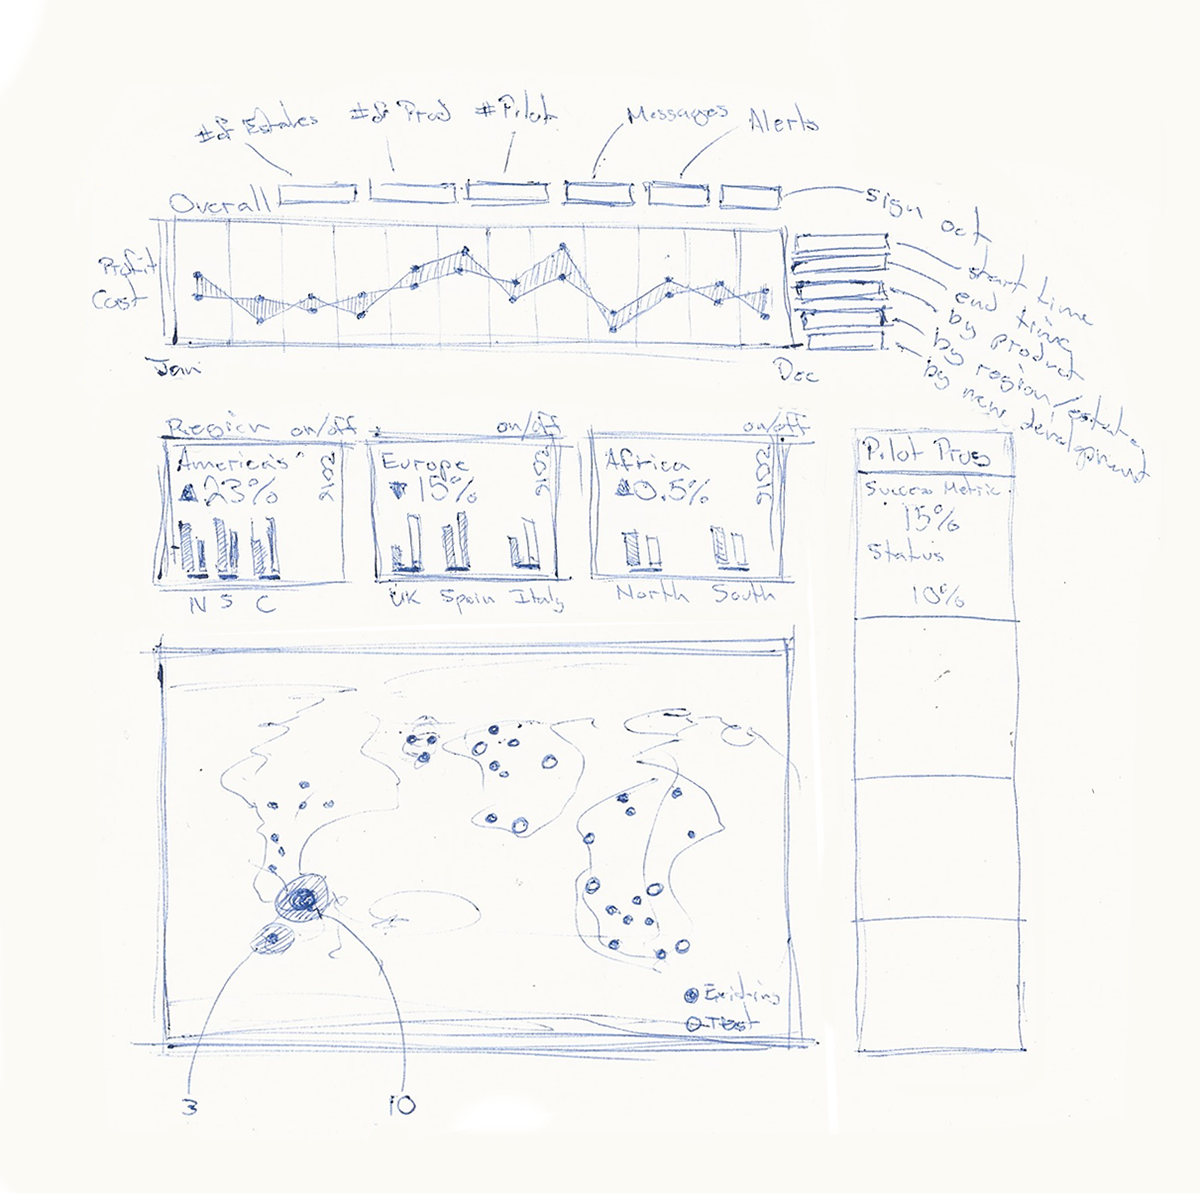 # of Estates
# of Prod
# Pilot
Messages
Alerts
Overall
sign out
Profit
Cost
start time
end time
by product
by region/estate
by new development
Jan
Dec
Region on/off
on/off
on/off
Americas
▲23%
Europe
▼15%
Africa
▲0.5%
N S C
UK Spain Italy
North South
Pilot Prog
Success Metric
15%
Status
10%
Existing
Test
3
10